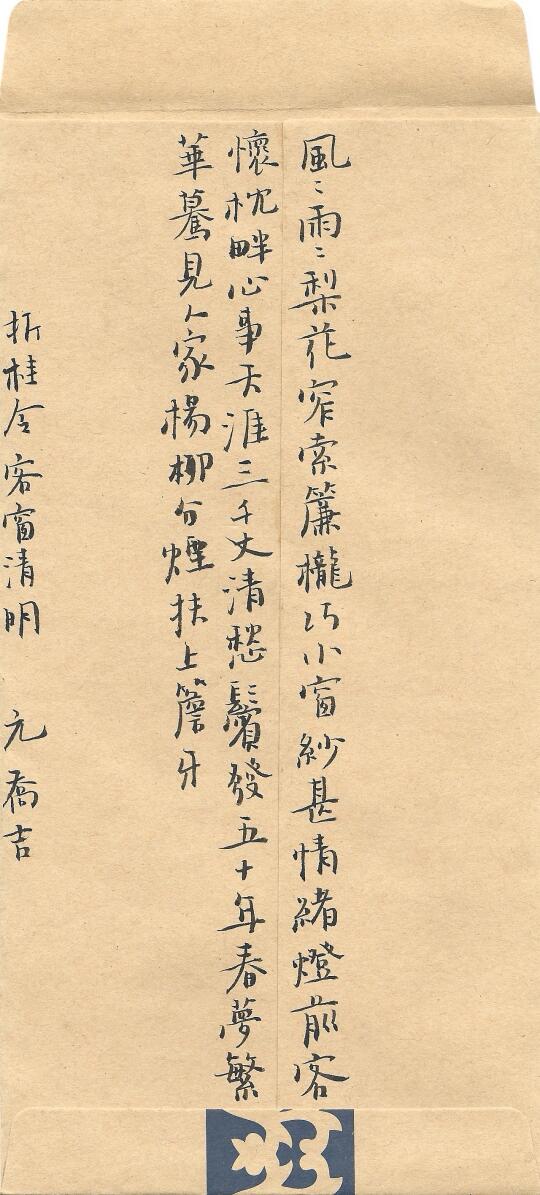 風〻雨〻梨花窄索簾櫳巧小窗紗甚情緒燈前客
懷枕畔心事天涯三千丈清愁鬢發五十年春夢繁
華驀見人家楊柳分煙扶上簷牙
折桂令客窗清明 元喬吉